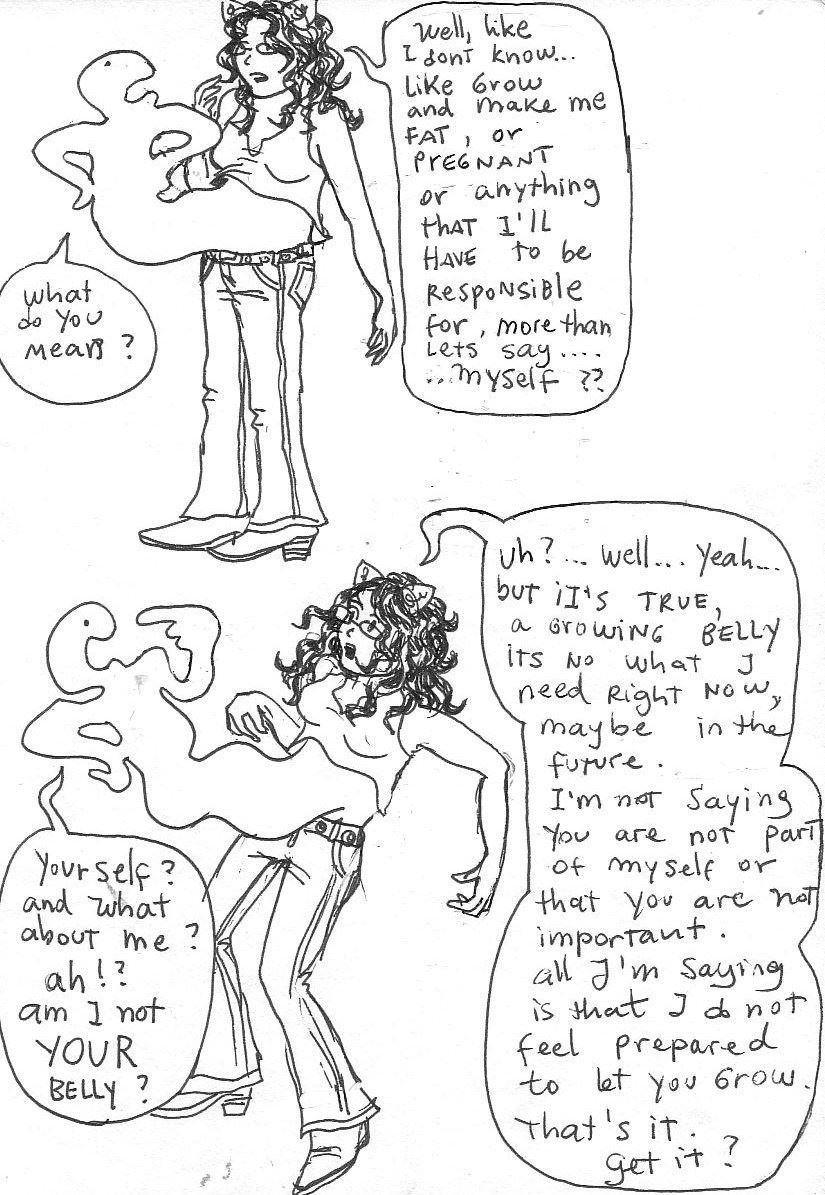 What
do you
mean ?
Well, like
I dont know...
Like Grow
and make me
FAT, or
PREGNANT
or anything
that I'll
HAVE to be
Responsible
for, more than
Lets say....
...myself ??
Yourself ?
and what
about me ?
ah!?
am I not
YOUR
BELLY ?
uh?... well... yeah...
but iI's TRUE,
a GROWING BELLY
its no what I
need Right Now,
maybe in the
future.
I'm not saying
you are not part
of myself or
that you are not
important.
all I'm saying
is that I do not
feel prepared
to let you Grow.
That's it.
get it ?